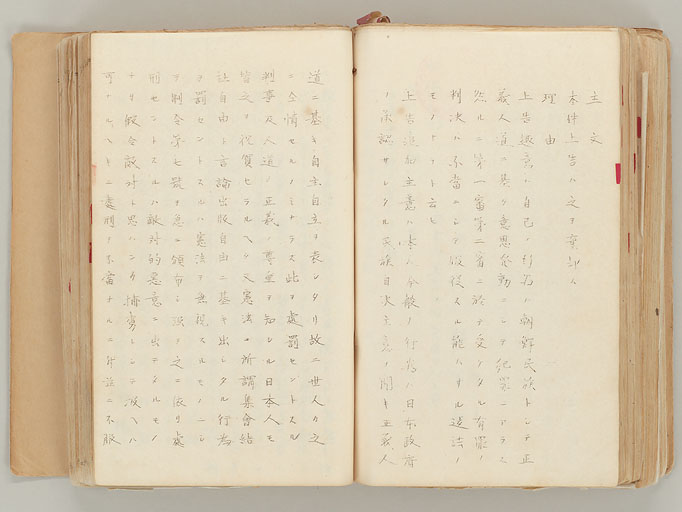 主文
本件上告ハ之ヲ棄却ス
理由
上告趣意ハ自己ノ行為ハ朝鮮民族トシテ正
義人道ニ基ク意思発動ニシテ犯罪ニアラス
然ルニ第一審第二審ニ於テ受ケタル有罪ノ
判決ハ不当ニシテ服従スル能ハサル違法ノ
モノナリト云ヒ
上告追加主意ハ本人今般ノ行為ハ日本政府
ノ承認サレタル民族自決主意ノ聞キ正義人
道ニ基キ自主自立ヲ表シタリ故ニ世人カ之
ニ全情セルノミナラス此ヲ處罰セントスル
判事及人道ノ正義ノ尊重ヲ知レル日本人モ
皆之ヲ祝賀セラルヘク又憲法ノ所謂集會結
社自由ト言論出版自由ニ基キ出シタル行為
ヲ罰セントスルハ憲法ヲ無視スルモノニシ
テ制令第七號ヲ急ニ頒布シ強テ之ニ依リ處
刑セントスルハ敵対的悪意ニ出テタルモノ
ナリ假令敵対ト思ハンカ情勇トシテ放ヘハ
可ナルヘキニ處刑ノ不當ナルニ付茲ニ不服